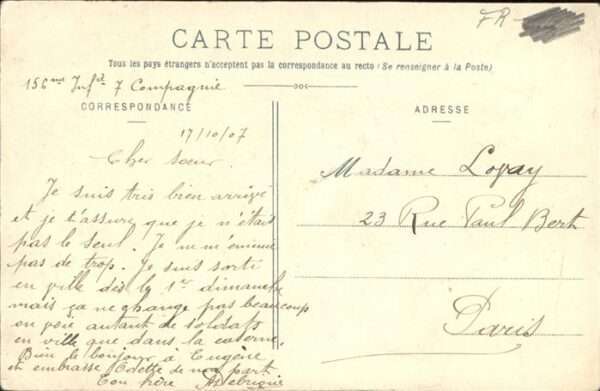 FR-
CARTE POSTALE
Tous les pays étrangers n'acceptent pas la correspondance au recto (Se renseigner à la Poste)
156me Inft 7 Compagnie
CORRESPONDANCE
17/10/07
Cher sœur
Je suis tris bien arrivé
et je t'assure que je n'étais
pas le seul. Je m'
pas de trop. Je suis sorti
en ville dès le 1er dimanche
mais ça ne change pas beaucoup
on voie autant de soldats
en ville que dans la caserne.
Bien le bonjour à Eugène
et embrasse Odette de mon part
Ton frère
ADRESSE
Madame Lovay
23 Rue Paul Bert
Paris